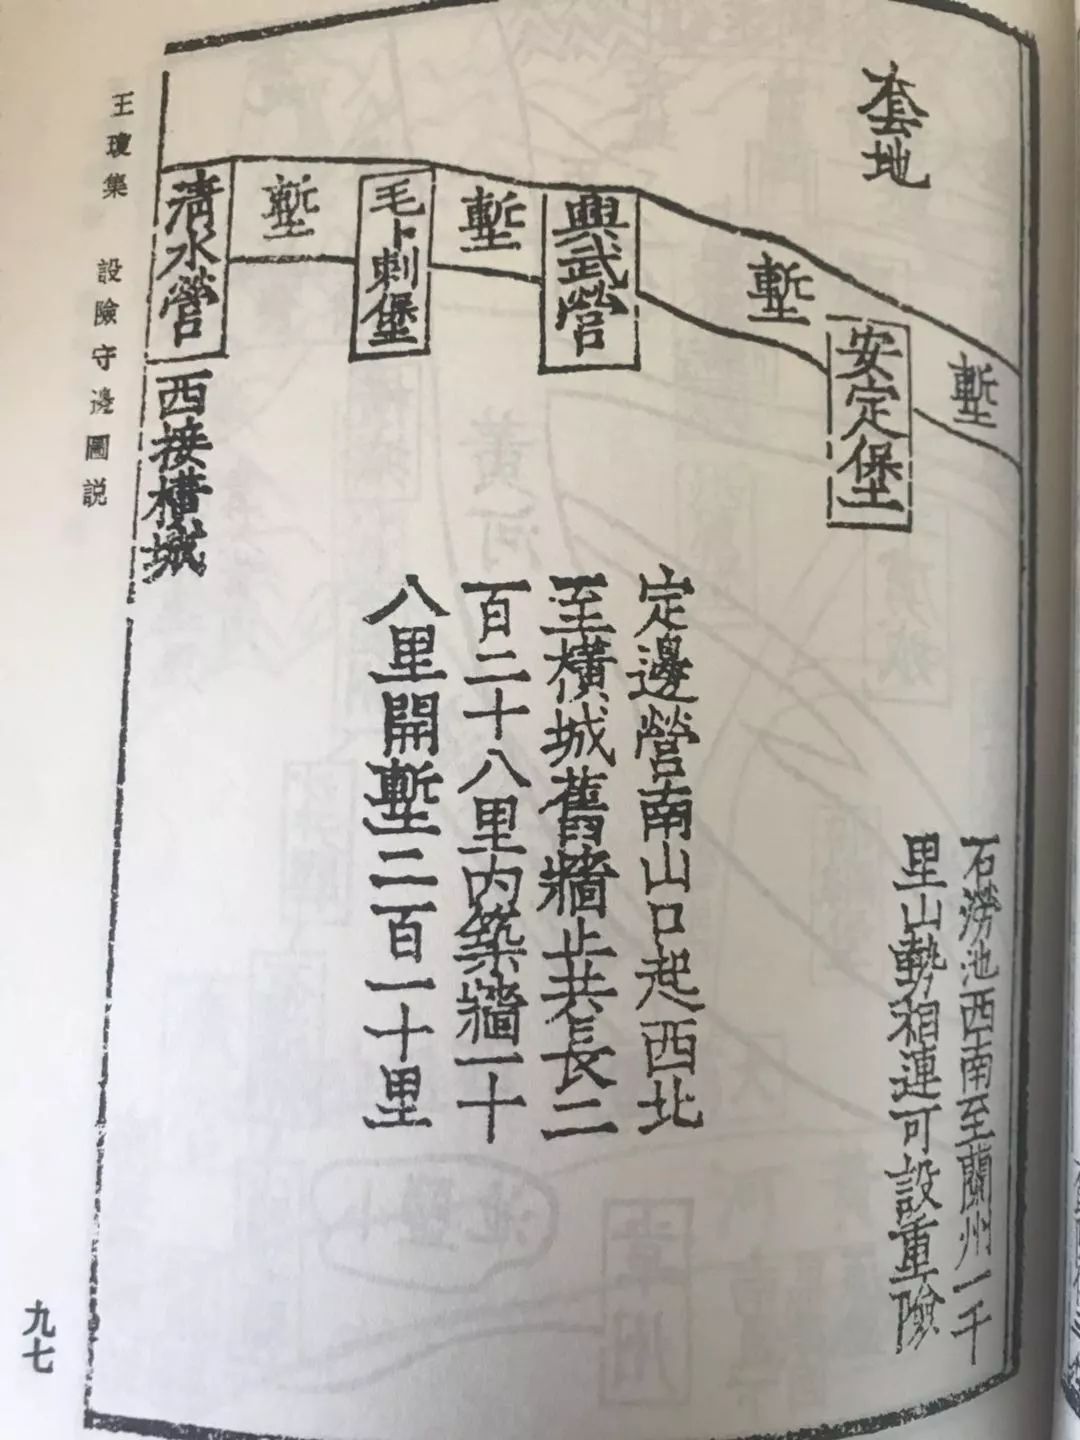 套地
塹
安定堡
塹
興武營
塹
毛卜剌堡
塹
清水營
西接橫城
石澇池西南至蘭州一千
里山勢相連可設重險
定邊營南山口起西北
至橫城舊牆止共長二
百二十八里內築牆一十
八里開塹二百一十里
王瓊集 設險守邊圖説
九七